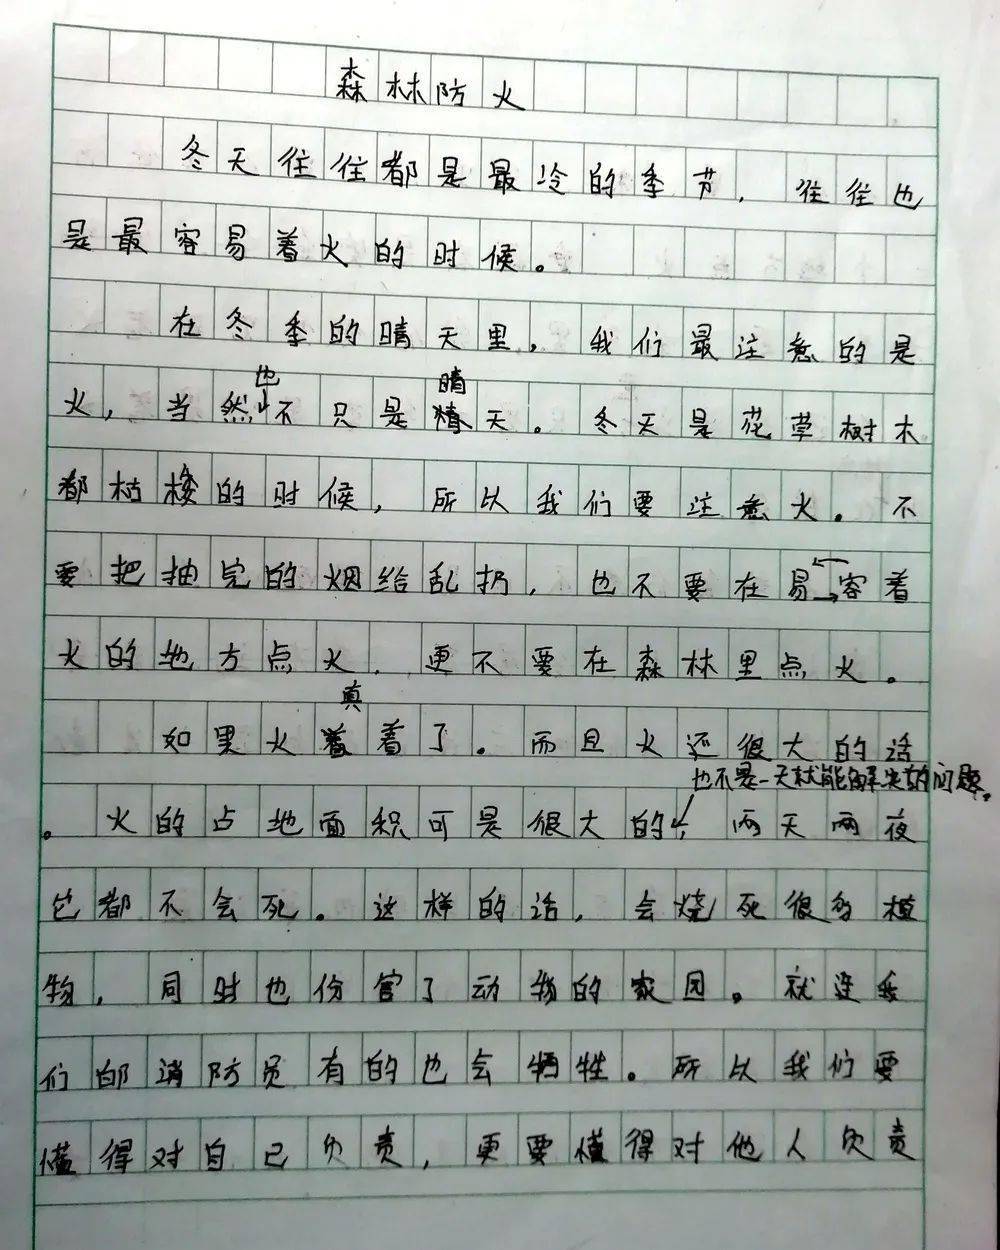 森林防火
冬天往往都是最冷的季节，往往也
是最容易着火的时候。
在冬季的晴天里，我们最注意的是
火，当然也不只是晴天。冬天是花草树木
都枯梭的时候，所以我们要注意火。不
要把抽完的烟给乱扔，也不要在易容着
火的地方点火，更不要在森林里点火。
如果火真着了。而且火还很大的话
也不是一天就能解决的问题。
。火的占地面积可是很大的，两天两夜
它都不会死。这样的话，会烧死很多植
物，同时也份害了动物的家园。就连我
们的消防员有的也会牺牲。所以我们要
懂得对自己负责，更要懂得对他人负责